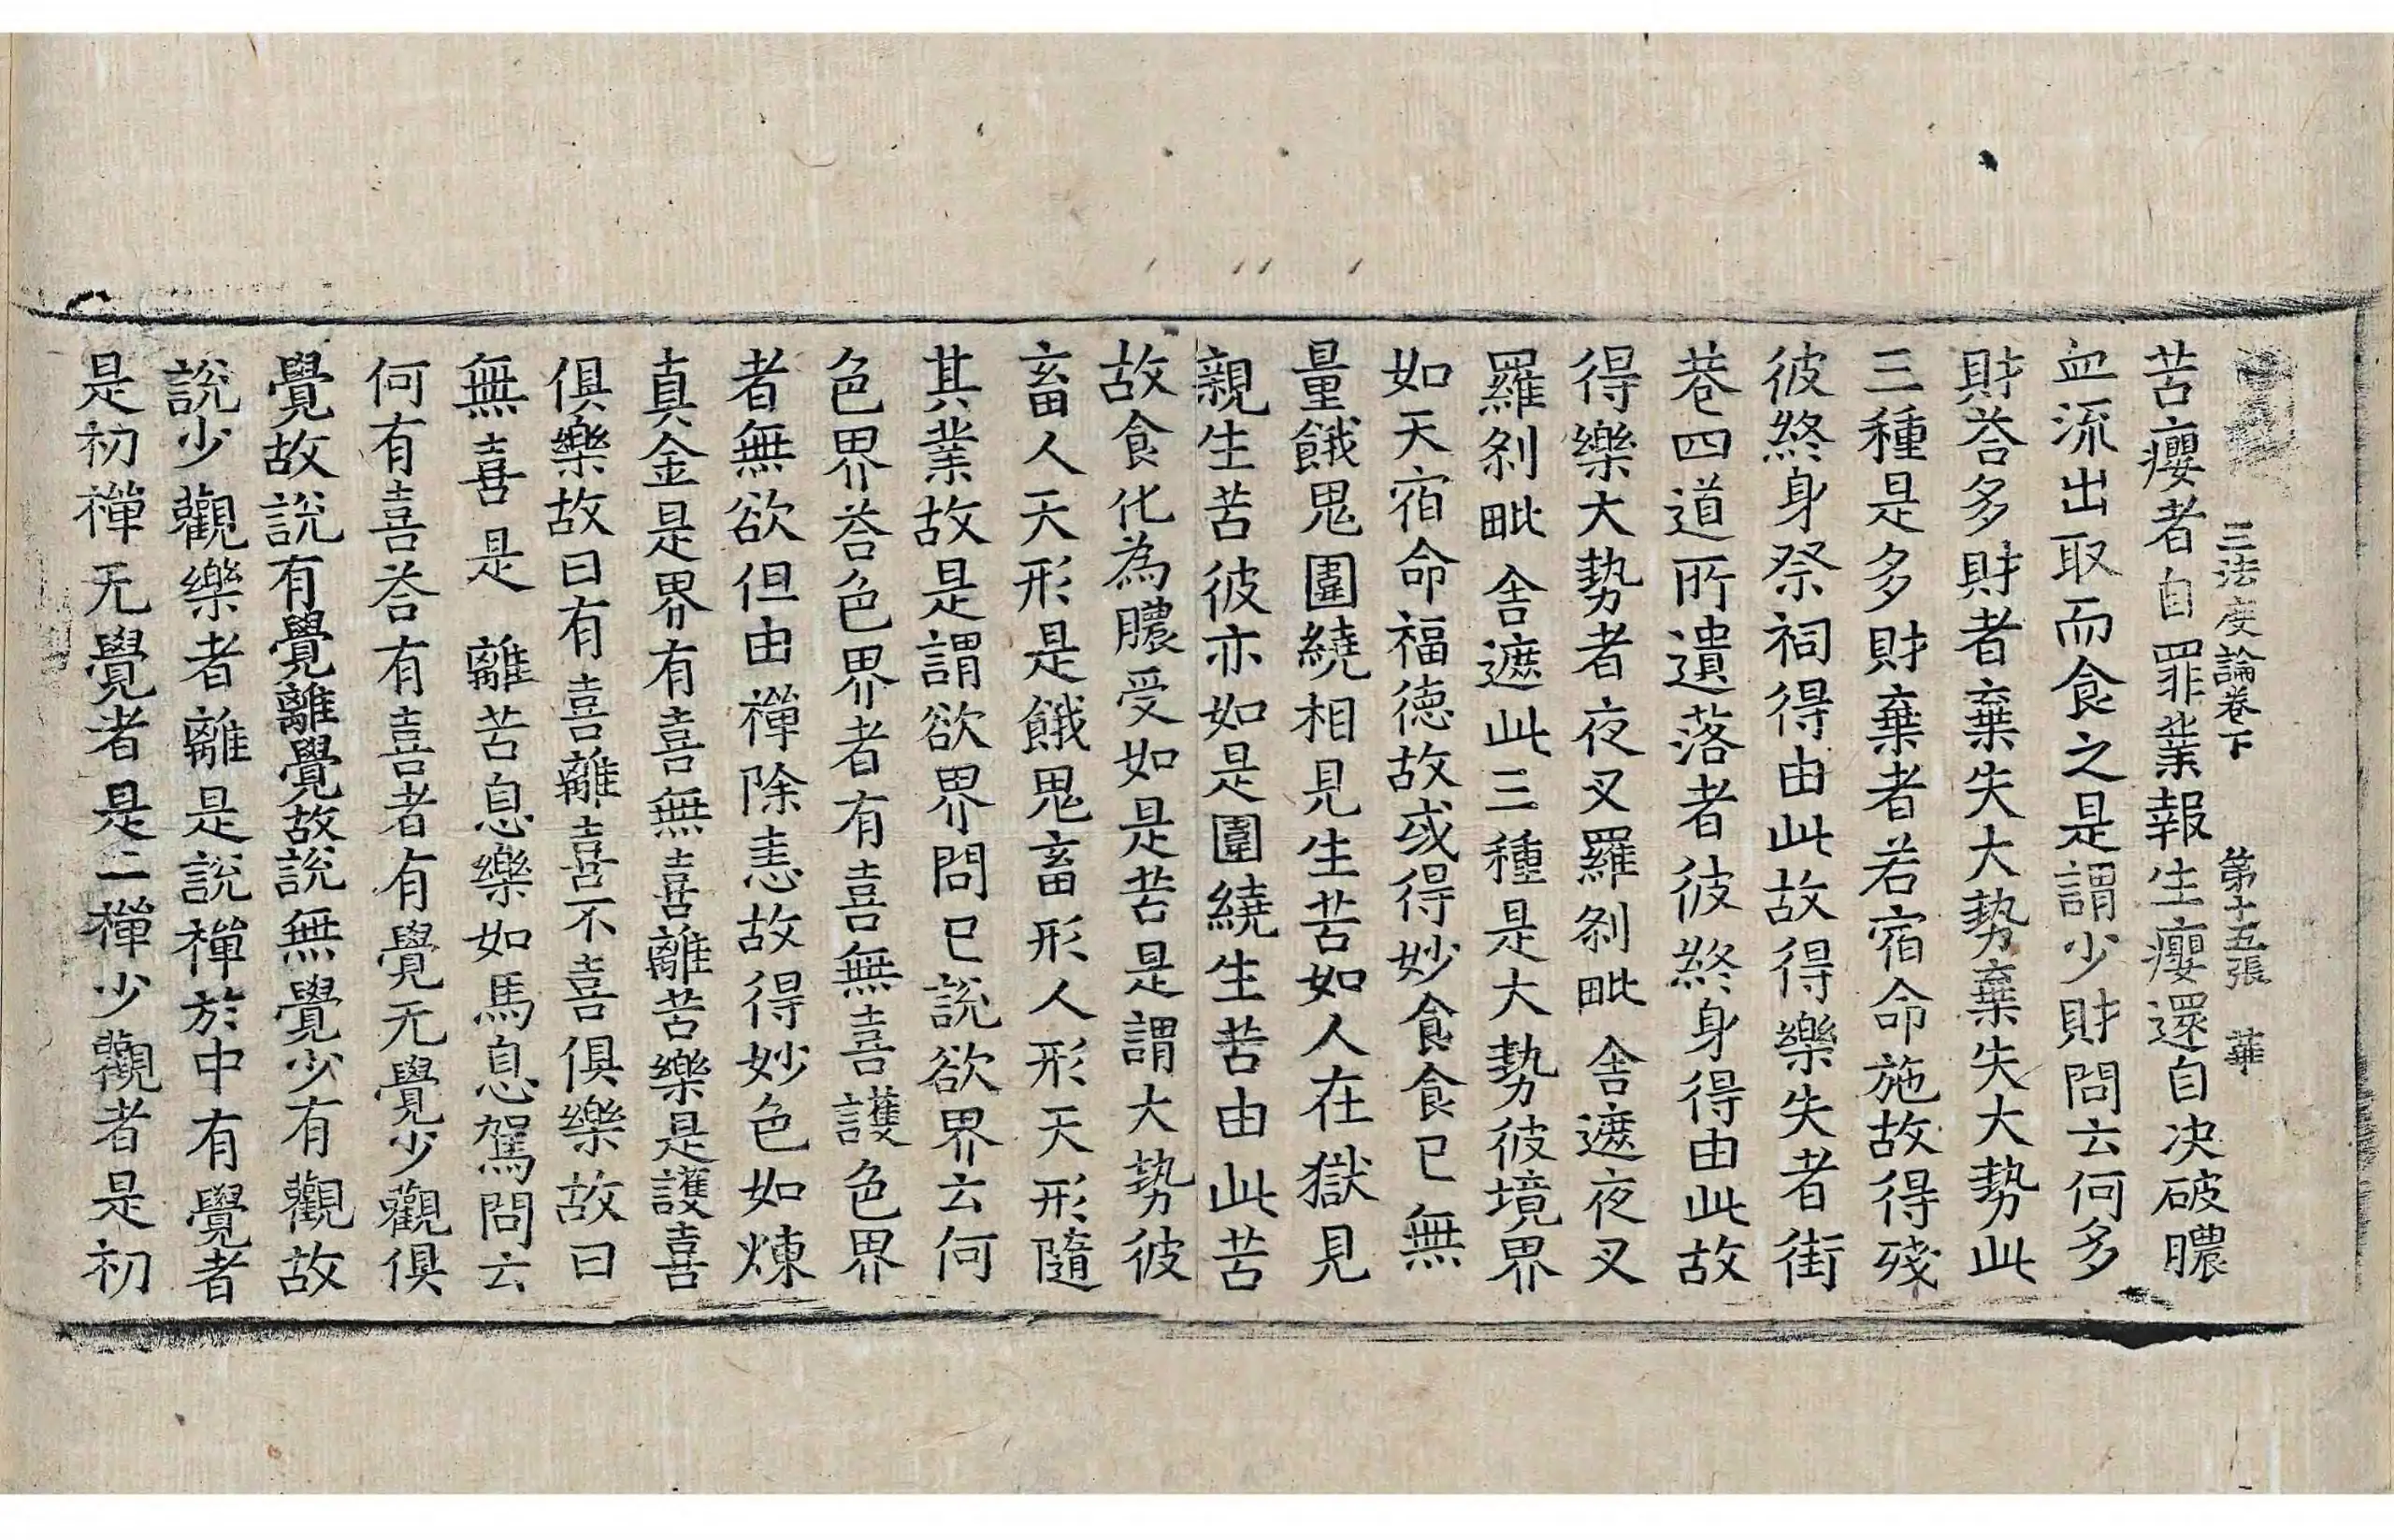 三法度論卷下 第十五張 華
苦癭者自罪業報生癭還自决破膿
血流出取而食之是謂少財問云何多
財荅多財者棄失大勢棄失大勢此
三種是多財棄者若宿命施故得殘
彼終身祭祠得由此故得樂失者街
巷四道所遺落者彼終身得由此故
得樂大勢者夜叉羅剎毗舍遮夜叉
羅剎毗舍遮此三種是大勢彼境界
如天宿命福德故或得妙食食已無
量餓鬼圍繞相見生苦如人在獄見
親生苦彼亦如是圍繞生苦由此苦
故食化為膿受如是苦是謂大勢彼
畜人天形是餓鬼畜形人形天形隨
其業故是謂欲界問已說欲界云何
色界荅色界者有喜無喜護色界
者無欲但由禪除恚故得妙色如煉
真金是界有喜無喜離苦樂是護喜
俱樂故曰有喜離喜不喜俱樂故曰
無喜是離苦息樂如馬息駕問云
何有喜荅有喜者有覺无覺少觀俱
覺故說有覺離覺故說無覺少有觀故
說少觀樂者離是說禪於中有覺者
是初禪无覺者是二禪少觀者是初